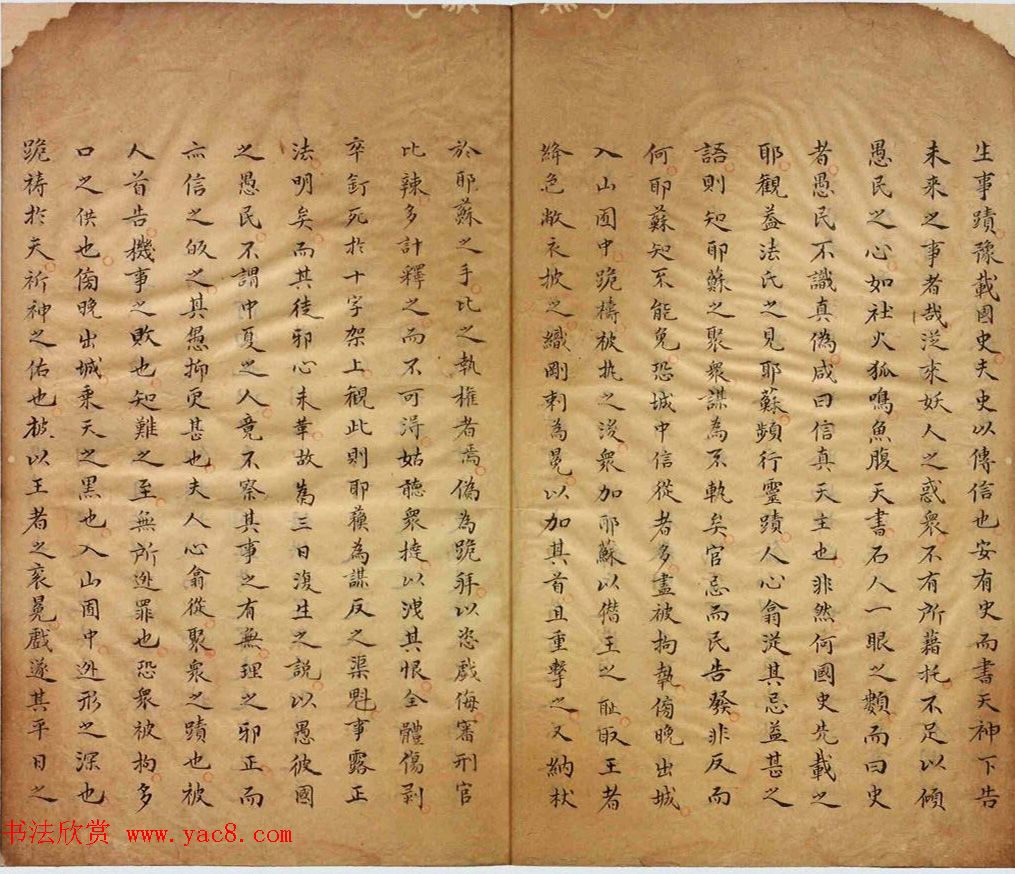 生事蹟豫載國史夫史以傳信也安有史而書天神下告
未來之事者哉從來妖人之惑衆不有所藉托不足以傾
愚民之心如社火狐鳴魚腹天書石人一眼之類而曰史
者愚民不識真偽咸曰信真天主也非然何國史先載之
耶觀蓋法氏之見耶蘇頻行靈蹟人心翕從其忌益甚之
語則知耶蘇之聚衆謀為不軌矣官忌而民告發非反而
何耶蘇知不能免恐城中信從者多盡被拘執傍晚出城
入山囿中跪禱被执之後衆加耶蘇以僭王之耻取王者
絳色敝衣披之織剛刺為冕以加其首且重擊之又納杖
於耶蘇之手比之執權者焉偽為跪拜以恣戲侮審刑官
比辣多計釋之而不可得姑聽衆撻以洩其恨全體傷剥
卒釘死於十字架上觀此則耶蘇為謀反之渠魁事露正
法明矣而其徒邪心未革故為三日復生之説以愚彼國
之愚民不謂中夏之人竟不察其事之有無理之邪正而
亦信之皈之其愚抑更甚也夫人心翕從聚衆之蹟也被
人首告機事之敗也知難之至無所逊罪也恐衆被拘多
口之供也傍晚出城乘天之黑也入山囿中逊形之深也
跪祷於天祈神之佑也披以王者之衮冕戲遂其平日之
书法欣赏 www.yac8.com